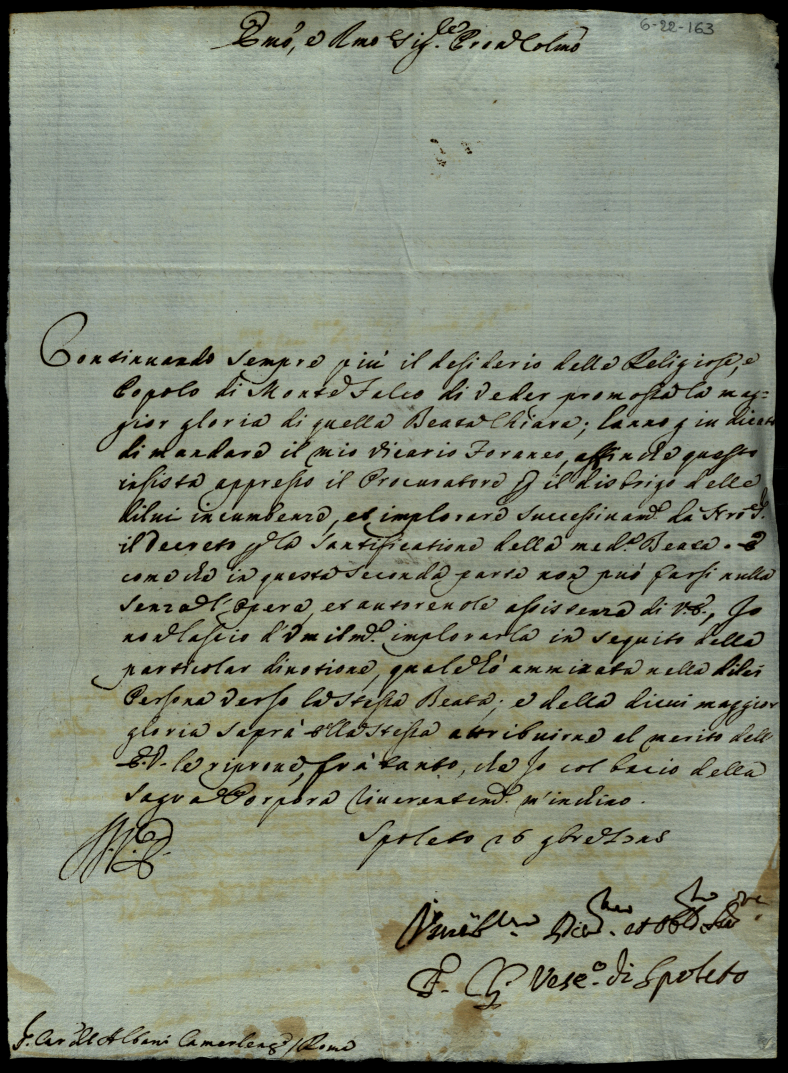 6-22-163
Emo, e Rmo Sig.re Pron Colmo
Continuando sempre più il desiderio delle Religiose, e
Popolo di Monte Falco di veder promossa la mag=
gior gloria di quella Beata Chiara; hanno giudicato
di mandare il mio Vicario Foraneo, affinche questo
insista appresso il Procuratore p il distrigo delle
dilui incumbenze, et implorare successivam.e da Nro S.re
il Decreto p la Santificatione della med.a Beata. E
come che in questa seconda parte non può farsi nulla
senza l'opera, et autorevole assistenza di V.E., Io
non lascio d'umilm.e implorarla in seguito della
particolar divotione, quale hò ammirata nella dilei
Persona verso la stessa Beata; e della dicui maggior
gloria saprà ella stessa attribuirne al merito dell'
E.V. le riprove, frà tanto, che Io col bacio della
Sagra Porpora riverentem.e m'inchino.
Spoleto 26 9bre
Di V.E.
Vmo Dev.mo et Obb.mo Ser.re
Vesc.o di Spoleto
S. Card.le Albani Camerleng.o / Roma